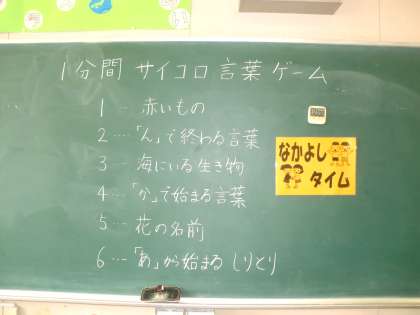 1分間 サイコロ 言葉 ゲーム
1 … 赤いもの
2 …「ん」で終わる言葉
3 … 海にいる生き物
4 …「か」で始まる言葉
5 … 花の名前
6 …「あ」から始まる しりとり
なかよし
タイム